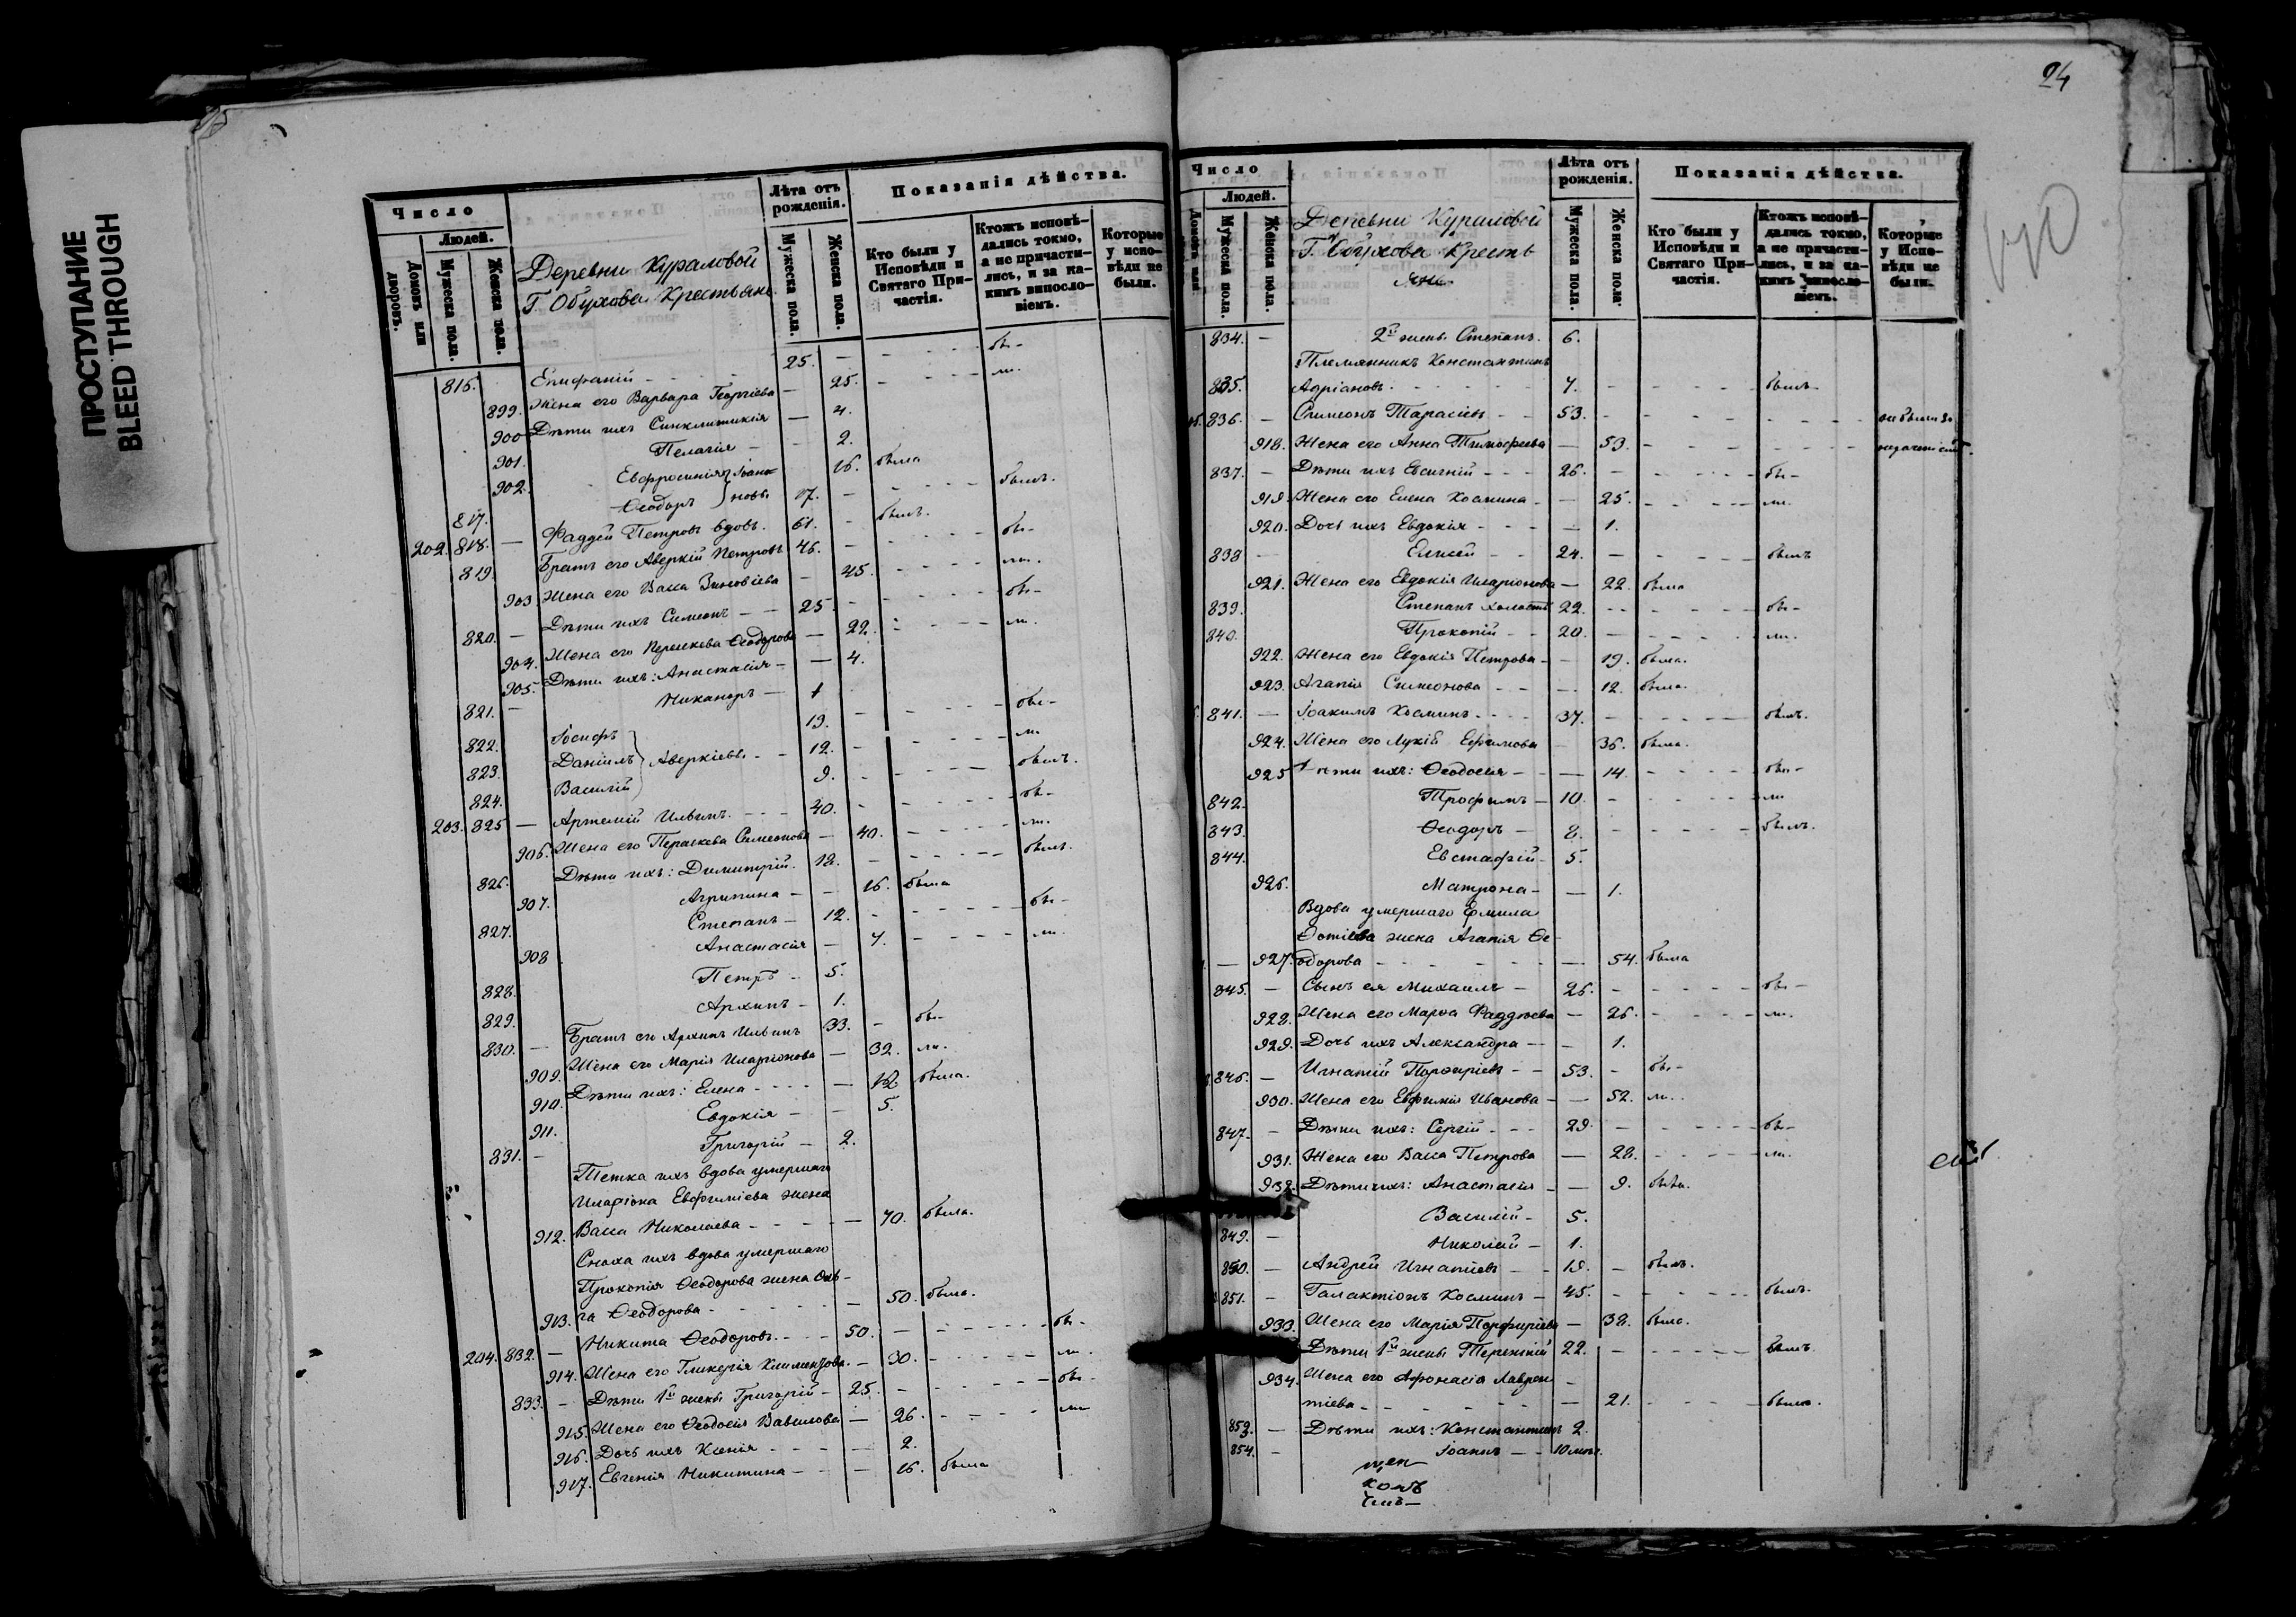 ПРОСТУПАНИЕ
BLEED THROUGH
Число
Людей.
Домовъ или дворовъ.
Мужеска пола.
Женска пола.
Деревни Кураловой
Г. Обухова Крестьяне
Лѣта отъ рожденія.
Мужеска пола.
Женска пола.
Показанія дѣйства.
Кто были у Исповѣди и Святаго Причастія.
Ктожъ исповѣдались токмо, а не причастились, и за какимъ винословіемъ.
Которые у исповѣди не были.
816. Епифаній - 25. — бы-
899. Жена его Варвара Георгіева — 25. - ли.
900 Дѣти ихъ Синклитикія — 4.
901. Пелагія — - 2.
902. Евфросинія } Іоанновы 16. была
817. Ѳеодоръ } 17. — былъ.
202. 818. — Фаддей Петровъ вдовъ. 61. - былъ.
819. Братъ его Аверкій Петровъ 46. - бы-
903 Жена его Васса Зиновіева — 45. - ли.
820. — Дѣти ихъ Симеонъ — 25. - бы-
904. Жена его Параскева Ѳеодорова — 22. - ли.
905. Дѣти ихъ: Анастасія — — 4.
821. — Никаноръ — 1
822. Іосифъ } 19. - бы-
823. Даніилъ } Аверкіевы - 12. - ли
824. Василій } 9. - былъ.
203. 825 — Артемій Ильинъ. - 40. - бы-
906. Жена его Параскева Симеонова — 40. - ли.
826. Дѣти ихъ: Димитрій. 18. — былъ.
907. Агрипина — - 16. была
827. Степанъ — 12. - бы-
908 Анастасія — 7. - ли.
828. Петръ - 5.
829. Архипъ - 1.
830. — Братъ его Архипъ Ильинъ 33. - бы-
909. Жена его Марія Иларіонова — 32. ли.
910. Дѣти ихъ: Елена - — 12 была.
911. Евдокія — - 5.
831. — Григорій — 2.
Тетка ихъ вдова умершаго
Иларіона Евфиміева жена
912. Васса Николаева - — 70. была.
Сноха ихъ вдова умершаго
Прокопія Ѳеодорова жена Оль-
913. га Ѳеодорова - — 50. была.
204. 832. — Никита Ѳеодоровъ. - 50. — бы-
914. Жена его Гликерія Климентова. — 30. - ли.
833. - Дѣти 1й жены Григорій — 25. - бы-
915. Жена его Ѳеодосія Вавилова — 26. - ли
916. Дочь ихъ Ксенія - — 2.
917. Евгенія Никитина - — 16. была
24
Число
Людей.
Мужеска пола.
Женска пола.
Деревни Кураловой
Г. Обухова Кресть
яне.
Лѣта отъ рожденія.
Мужеска пола.
Женска пола.
Показанія дѣйства.
Кто были у Исповѣди и Святаго Причастія.
Ктожъ исповѣдались токмо, а не причастились, и за какимъ винословіемъ.
Которые у Исповѣди не были.
834. — 2й жены Степанъ. 6.
Племянникъ Константинъ
835. Адріановъ. - 7. - былъ-
836. — Симеонъ Тарасіевъ - 53. - не были за
918. Жена его Анна Тимофеева — 53. - нерачѣніемъ.
837. — Дѣти ихъ Евсигній - 26. - бы-
919. Жена его Елена Косьмина - — 25. - ли.
920. Дочь ихъ Евдокія - — 1.
838 — Елисей - 24. — былъ
921. Жена его Евдокія Иларіонова — 22. была
839. Степанъ холостъ 22. - бы-
840. Прокопій - 20. — ли.
922. Жена его Евдокія Петрова - — 19. была.
923. Агапія Симеонова - — 12. была.
841. — Іоакимъ Косминъ. - 37. - былъ.
924. Жена его Лукія Ефимова — 36. была.
925 Дѣти ихъ: Ѳеодосія — — 14. - бы-
842. Трофимъ — 10. - ли
843. Ѳеодоръ — 8. - былъ.
844. Евстафій - 5.
926. Матрона — — 1.
Вдова умершаго Ермила
Фотіева жена Агапія Ѳе-
— 927. одорова - — 54. была
845. — Сынъ ея Михаилъ — 26. - бы-
928. Жена его Марѳа Фаддѣева — 26. - ли.
929. Дочь ихъ Александра — — 1.
846. — Игнатій Порфиріевъ - 53. - бы-
930. Жена его Евфимія Иванова — 52. ли.
847. — Дѣти ихъ: Сергій - 29. — бы-
931. Жена его Васса Петрова — 28. - ли.
932. Дѣти ихъ: Анастасія - — 9. была.
Василій - 5.
849. — Николай — 1.
850. — Андрей Игнатіевъ - 19. — былъ.
851. — Галактіонъ Косминъ — 45. - былъ.
933. Жена его Марія Порфиріева — 38. была.
Дѣти 1й жены Терентій 22. - былъ.
934. Жена его Афонасія Лаврен -
тіева - — 21. - была.
853. — Дѣти ихъ: Константинъ 2.
854. — Іоаннъ - 10 мѣс.